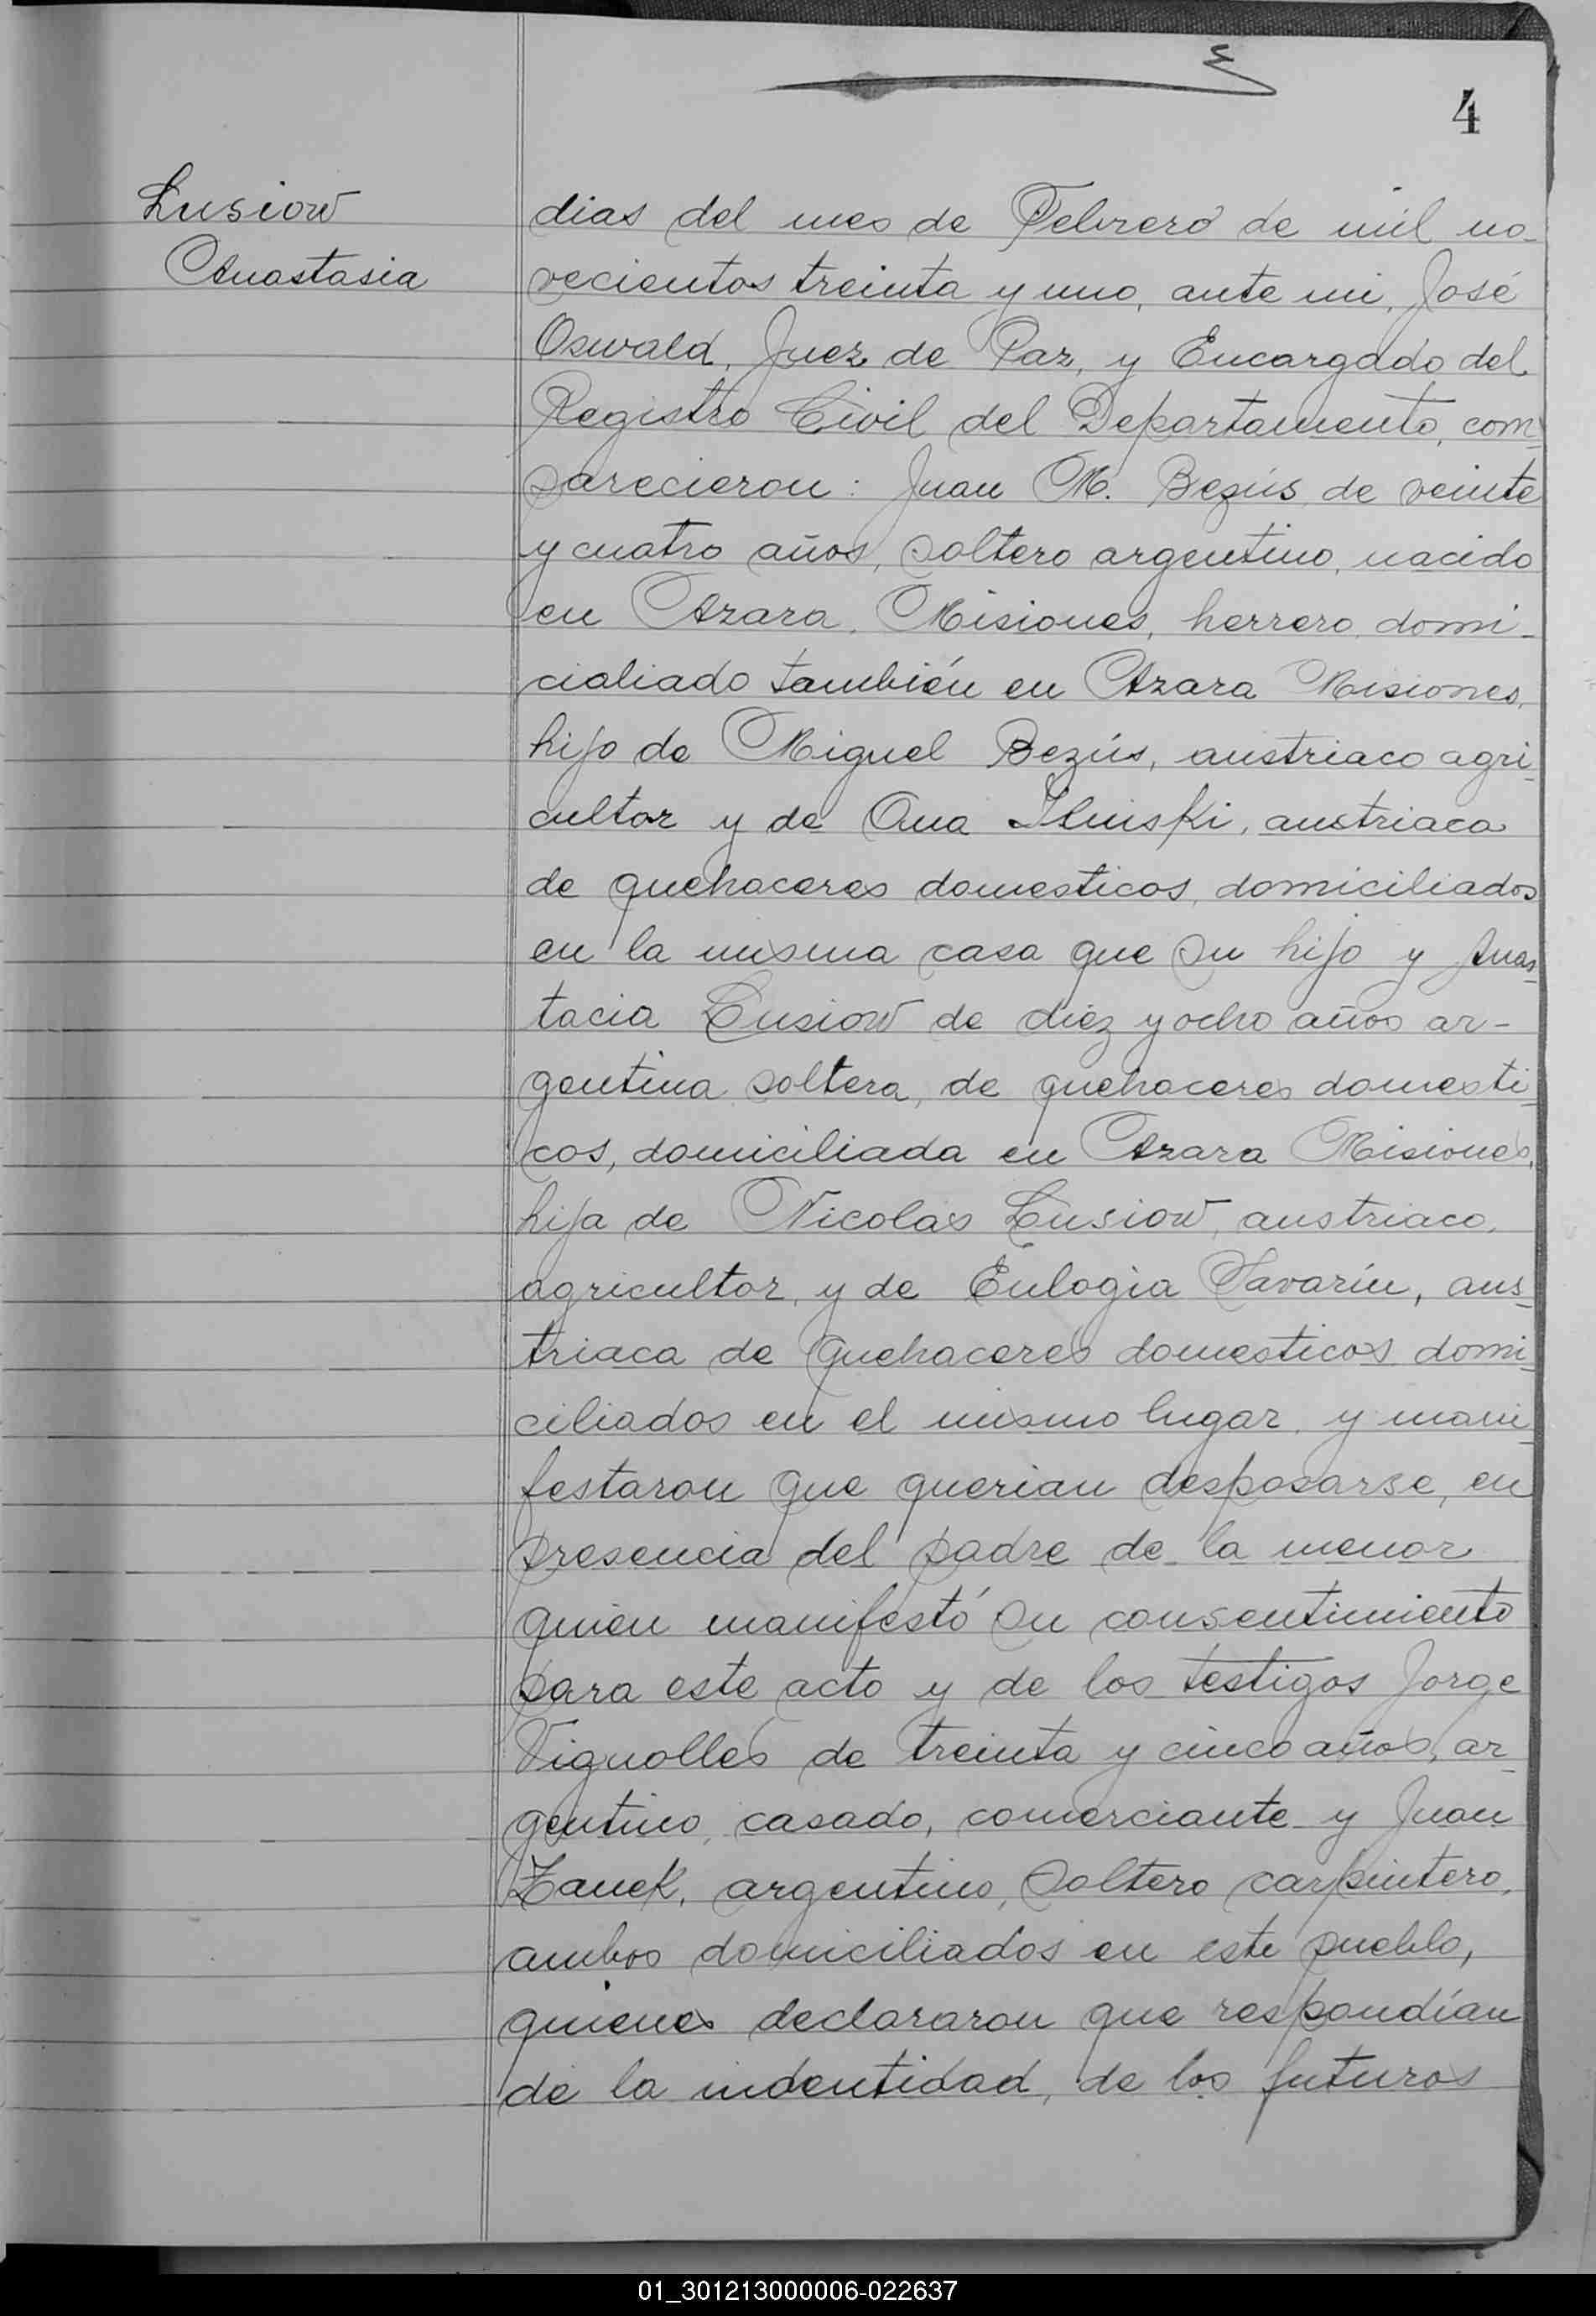 4
Lusiow
Anastasia
dias del mes de Febrero de mil no-
vecientos treinta y uno, ante mi, José
Oswald, Juez de Paz, y Encargado del
Registro Civil del Departamento, com-
parecieron: Juan M. Bezús, de veinte
y cuatro años, soltero argentino, nacido
en Azara, Misiones, herrero, domi-
cialiado también en Azara Misiones,
hijo de Miguel Bezús, austriaco agri-
cultor y de Ana Ilniski, austriaca
de quehaceres domesticos, domiciliados
en la misma casa que su hijo y Anas-
tacia Lusiow de diez y ocho años ar-
gentina soltera, de quehaceres domesti-
cos, domiciliada en Azara Misiones,
hija de Nicolas Lusiow, austriaco,
agricultor, y de Eulogia Savarin, aus-
triaca de quehaceres domesticos domi-
ciliados en el mismo lugar, y mani-
festaron que querian desposarse, en
presencia del padre de la menor
quien manifestó su consentimiento
para este acto y de los testigos Jorge
Vignolles de treinta y cinco años, ar-
gentino, casado, comerciante y Juan
Zanek, argentino, soltero carpintero,
ambos domiciliados en este pueblo,
quienes declararon que respondían
de la indentidad, de los futuros
01_301213000006-022637